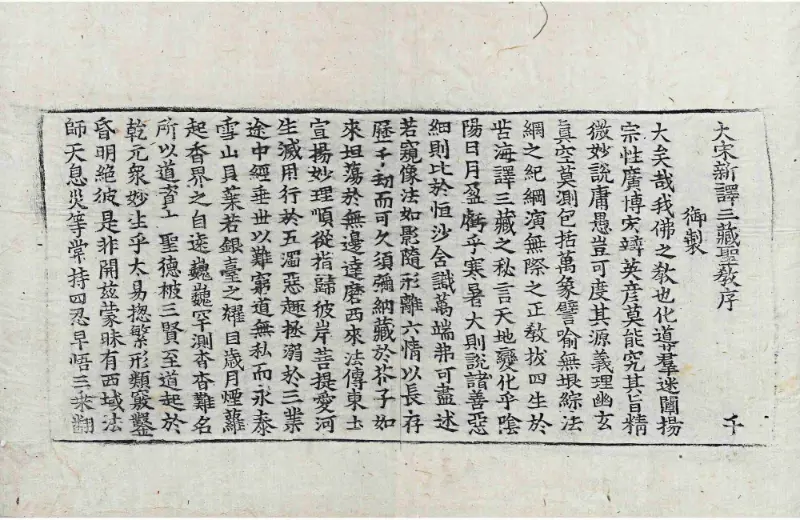 大宋新譯三藏聖敎序
千
御製
大矣哉我佛之敎也化導羣迷闡揚
宗性廣博宏辯英彦莫能究其旨精
微妙說庸愚豈可度其源義理幽玄
眞空莫測包括萬象譬喻無垠綜法
網之紀綱演無際之正敎拔四生於
苦海譯三藏之秘言天地變化乎陰
陽日月盈虧乎寒暑大則說諸善惡
細則比於恒沙含識萬端弗可盡述
若窺像法如影隨形離六情以長存
歷千劫而可久須彌納藏於芥子如
來坦蕩於無邊達磨西來法傳東土
宣揚妙理順從指歸彼岸菩提愛河
生滅用行於五濁惡趣拯溺於三業
途中經垂世以難窮道無私而永泰
雪山貝葉若銀臺之耀目歲月煙蘿
起香界之自遠巍巍罕測杳杳難名
所以道資 聖德被三賢至道起於
乾元衆妙生乎太易揔繁形類竅鑿
昏明絶彼是非開茲蒙昧有西域法
師天息災等常持四忍早悟三乘翻